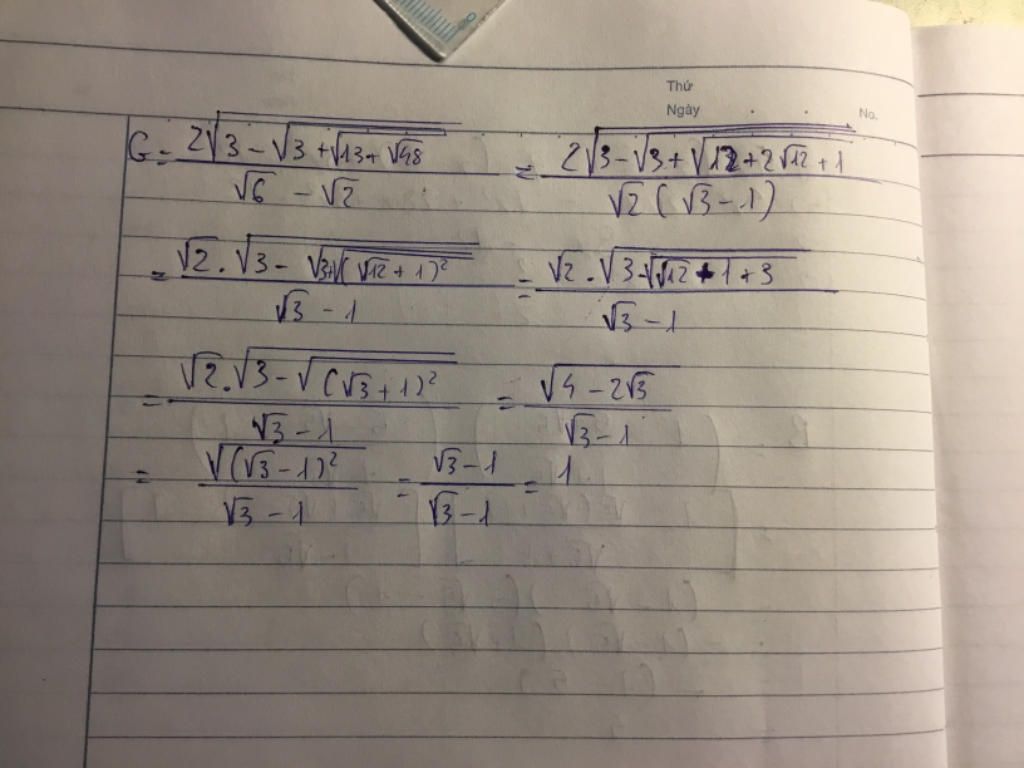 Thứ
Ngày
No.
G = \frac{2\sqrt{3 - \sqrt{3 + \sqrt{13 + \sqrt{48}}}}}{\sqrt{6} - \sqrt{2}} = \frac{2\sqrt{3 - \sqrt{3 + \sqrt{12 + 2\sqrt{12} + 1}}}}{\sqrt{2}(\sqrt{3} - 1)}
= \frac{\sqrt{2} . \sqrt{3 - \sqrt{3 + \sqrt{(\sqrt{12} + 1)^2}}}}{\sqrt{3} - 1} = \frac{\sqrt{2} . \sqrt{3 - \sqrt{\sqrt{12} + 1 + 3}}}{\sqrt{3} - 1}
= \frac{\sqrt{2} . \sqrt{3 - \sqrt{(\sqrt{3} + 1)^2}}}{\sqrt{3} - 1} = \frac{\sqrt{4 - 2\sqrt{3}}}{\sqrt{3} - 1}
= \frac{\sqrt{(\sqrt{3} - 1)^2}}{\sqrt{3} - 1} = \frac{\sqrt{3} - 1}{\sqrt{3} - 1} = 1